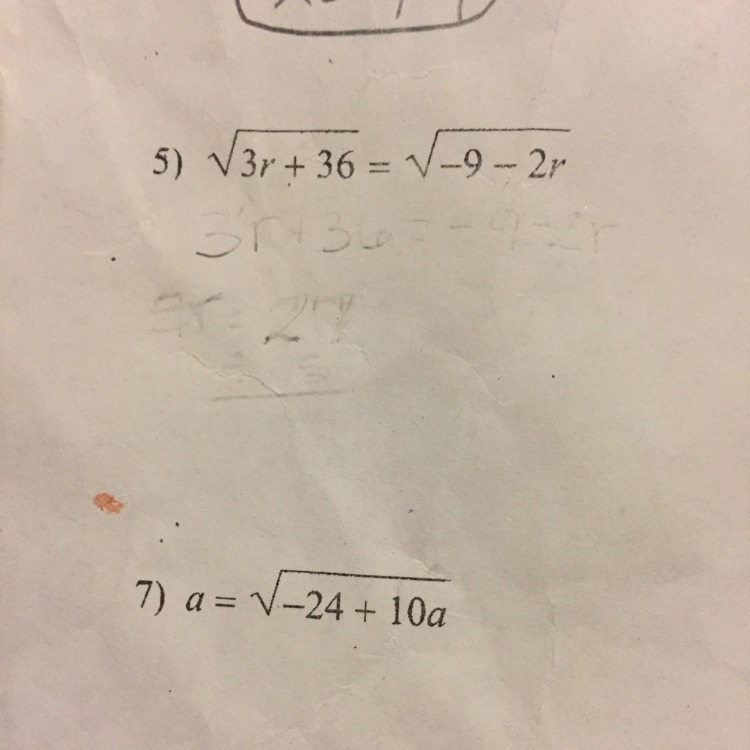 5) √3r + 36 = √-9 - 2r
3r+36 = -9-2r
5r = 27
7) a = √-24 + 10a